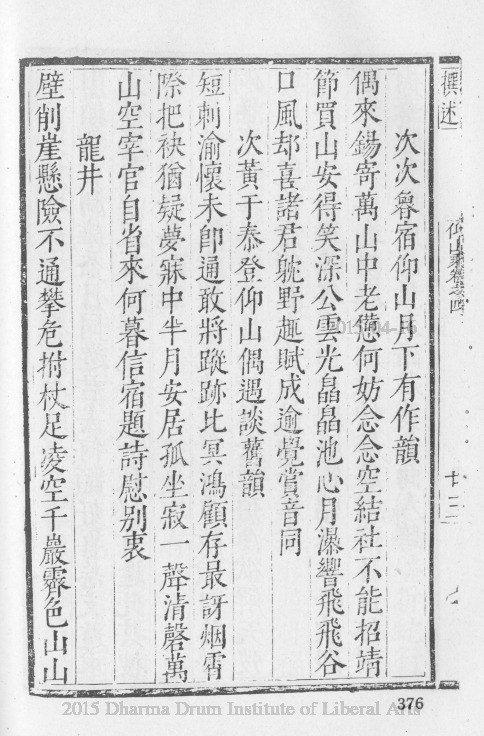 撰述
次次魯宿仰山月下有作韻
偶來錫寄萬山中老憊何妨念念空結社不能招靖
節買山安得笑深公雲光晶晶池心月瀑響飛飛谷
口風却喜諸君躭野趣賦成逾覺賞音同
次黃于泰登仰山偶遇談舊韻
短刺渝懷未卽通敢將蹤跡比冥鴻顧存最訝烟霄
際把袂猶疑夢寐中半月安居孤坐寂一聲清磬萬
山空宰官自省來何暮信宿題詩慰别衷
龍井
壁削崖懸險不通攀危拊杖足凌空千巖霽色山山
376
2015 Dharma Drum Institute of Liberal Arts